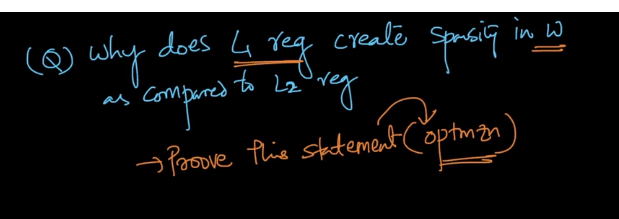 (Q) why does L1 reg create sparsity in w
as compared to L2 reg
→ Proove this statement (optmzn)